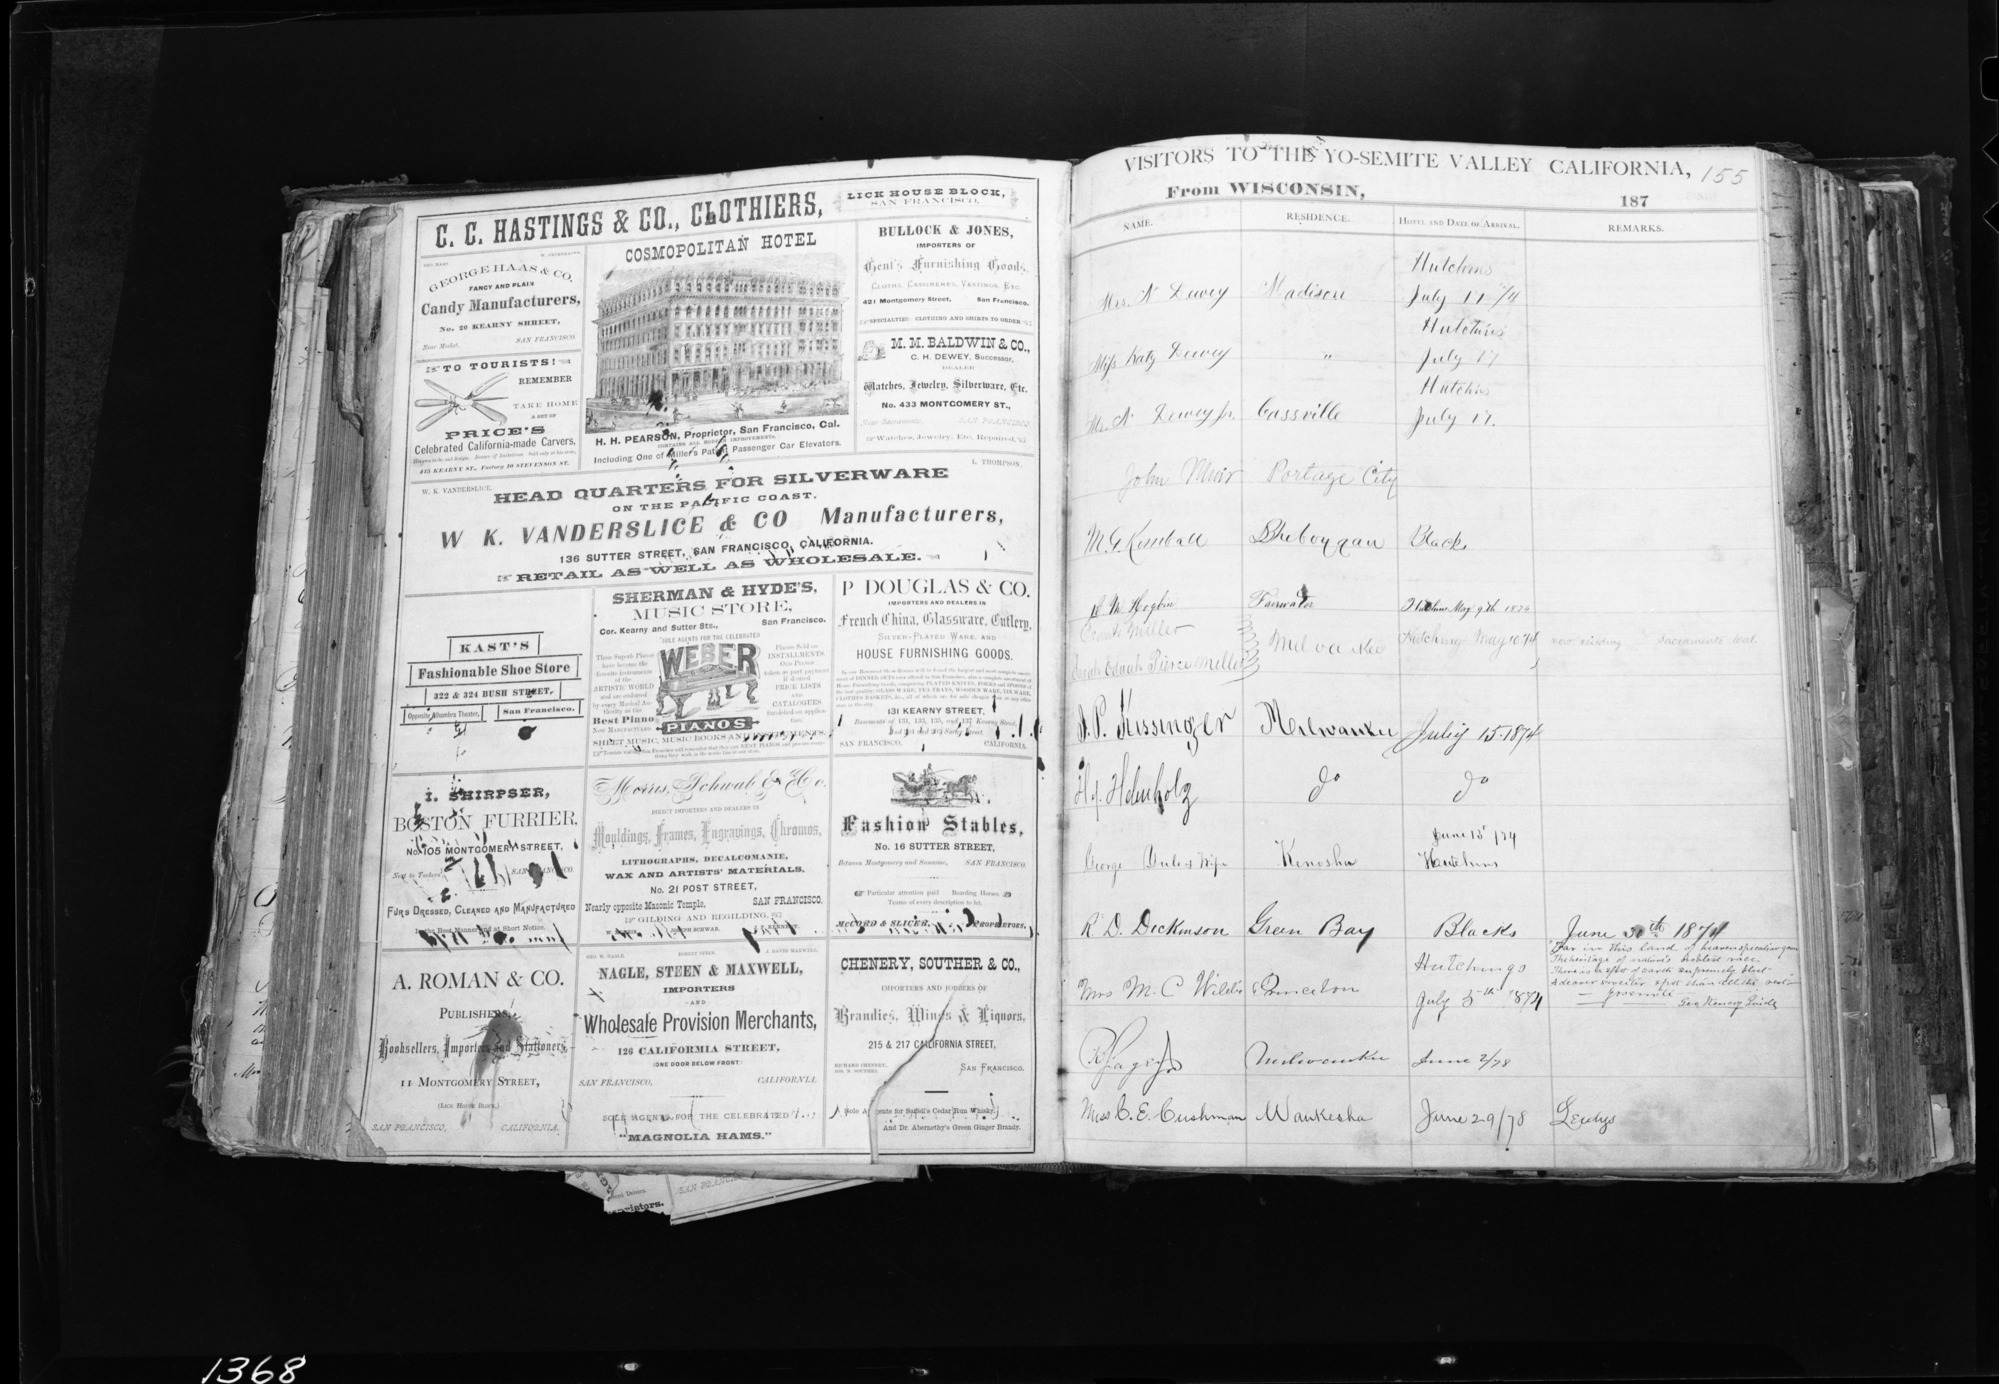 C. C. HASTINGS & CO., CLOTHIERS,
LICK HOUSE BLOCK,
SAN FRANCISCO.
GEORGE HAAS & CO.
FANCY AND PLAIN
Candy Manufacturers,
No. 20 KEARNY SHREET,
Near Market.
SAN FRANCISCO.
TO TOURISTS!
REMEMBER
TAKE HOME
A SET OF
PRICE'S
Celebrated California-made Carvers,
415 KEARNY ST., Factory 10 STEVENSON ST.
COSMOPOLITAN HOTEL
H. H. PEARSON, Proprietor, San Francisco, Cal.
CONTAINS ALL MODERN IMPROVEMENTS,
Including One of Miller's Patent Passenger Car Elevators.
BULLOCK & JONES,
IMPORTERS OF
Gent's Furnishing Goods,
CLOTHS, CASSIMERES, VESTINGS, ETC.
421 Montgomery Street, San Francisco.
SPECIALTIES: CLOTHING AND SHIRTS TO ORDER
M. M. BALDWIN & CO.,
C. H. DEWEY, Successor,
DEALER
Watches, Jewelry, Silverware, Etc.
No. 433 MONTGOMERY ST.,
Near Sacramento, SAN FRANCISCO.
Watches, Jewelry, Etc. Repaired.
W. K. VANDERSLICE.
L. THOMPSON.
HEAD QUARTERS FOR SILVERWARE
ON THE PACIFIC COAST.
W K. VANDERSLICE & CO Manufacturers,
136 SUTTER STREET, SAN FRANCISCO, CALIFORNIA.
RETAIL AS WELL AS WHOLESALE.
KAST'S
Fashionable Shoe Store
322 & 324 BUSH STREET,
Opposite Alhambra Theater,
San Francisco.
SHERMAN & HYDE'S,
MUSIC STORE,
Cor. Kearny and Sutter Sts., San Francisco.
SOLE AGENTS FOR THE CELEBRATED
WEBER
PIANOS
These Superb Pianos
have become the
favorite Instruments
of the
ARTISTIC WORLD
and are endorsed
by every Musical Au-
thority as the
Best Piano
Now MANUFACTURED
Pianos Sold on
INSTALLMENTS.
Old Pianos
taken in part payment
if desired
PRICE LISTS
AND
CATALOGUES
furnished on applica-
tion.
SHEET MUSIC, MUSIC BOOKS AND INSTRUMENTS.
P DOUGLAS & CO.
IMPORTERS AND DEALERS IN
French China, Glassware, Cutlery,
SILVER-PLATED WARE, AND
HOUSE FURNISHING GOODS.
131 KEARNY STREET,
Basements of 131, 133, 135, and 137 Kearny Street,
SAN FRANCISCO, CALIFORNIA.
I. SHIRPSER,
BOSTON FURRIER,
No. 105 MONTGOMERY STREET,
SAN FRANCISCO.
FURS DRESSED, CLEANED AND MANUFACTURED
In the Best Manner and at Short Notice.
Morris, Schwab & Co.
DIRECT IMPORTERS AND DEALERS IN
Mouldings, Frames, Engravings, Chromos,
LITHOGRAPHS, DECALCOMANIE,
WAX AND ARTISTS' MATERIALS.
No. 21 POST STREET,
Nearly opposite Masonic Temple, SAN FRANCISCO.
GILDING AND REGILDING.
JOSEPH SCHWAB.
Fashion Stables,
No. 16 SUTTER STREET,
Between Montgomery and Sansome, SAN FRANCISCO.
Particular attention paid Boarding Horses.
Teams of every description to let.
McCORD & SLICER, PROPRIETORS,
A. ROMAN & CO.
PUBLISHERS,
Booksellers, Importers and Stationers,
11 MONTGOMERY STREET,
(LICK HOUSE BLOCK,)
SAN FRANCISCO, CALIFORNIA.
GEO. W. NAGLE. ROBERT STEEN. J. DAVID MAXWELL.
NAGLE, STEEN & MAXWELL,
IMPORTERS
AND
Wholesale Provision Merchants,
126 CALIFORMIA STREET,
ONE DOOR BELOW FRONT
SAN FRANCISCO, CALIFORNIA
SOLE AGENTS FOR THE CELEBRATED
"MAGNOLIA HAMS."
CHENERY, SOUTHER & CO.,
IMPORTERS AND JOBBERS OF
Brandies, Wines & Liquors,
215 & 217 CALIFORNIA STREET,
RICHARD CHENERY,
JOB. N. SOUTHER.
SAN FRANCISCO.
Sole Agents for Saffell's Cedar Run Whisky,
And Dr. Abernethy's Green Ginger Brandy.
VISITORS TO THE YO-SEMITE VALLEY CALIFORNIA, 155
From WISCONSIN, 187
NAME. RESIDENCE. HOTEL AND DATE OF ARRIVAL. REMARKS.
Hutchins
Mrs. N Dewey Madison July 17 /74
Hutchins
Miss Katy Dewey " July 17
Hutchins
Mr. N Dewey Jr. Cassville July 17.
John Muir Portage City
M. G. Kimball Sheboygan Blacks
Fairwater May 9th 1874
Frank Miller Milwaukee Hutchings May 10 74 now residing Sacramento Cal.
Sarah Ednah Pierce Miller
J. P. Kissinger Milwaukee July 15. 1874
H. J. Helmholz do do
June 15 /74
George Yule & Wife Kenosha Hutchins
R. D. Dickinson Green Bay Blacks June 30th 1874
Mrs M. C. Wilde Princeton Hutchings
July 5th 1874
Far in this land of
The heritage of nature's noblest race.
There is a spot of earth supremely blest
A dearer sweeter spot than all the rest
Yosemite
Milwaukee June 2/78
Miss C. E. Cushman Waukesha June 29/78 Leidigs
1368